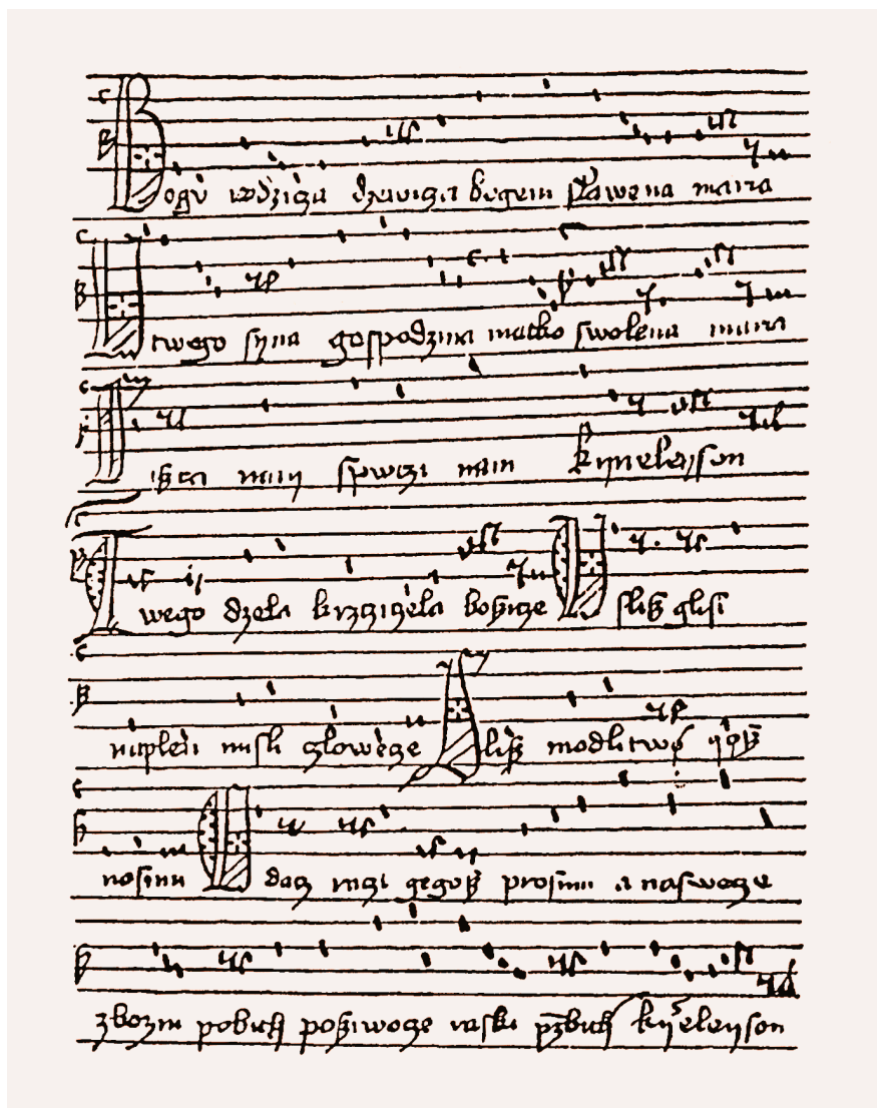 Bogu rodzicza dzewicza bogem slawena maria
U twego syna gospodzina matko swolena maria
Siszczi nam spwczi nam kyrieleyson
Twego dzela krzcziczela bozicze Uslisz glosi
naplen misli czlowecze Slisz modlitwø yøsz
nosimi Odacz raczi gegosz prosimi a naswecze
zbozni pobith posziwocze raski przbith kyrieleyson